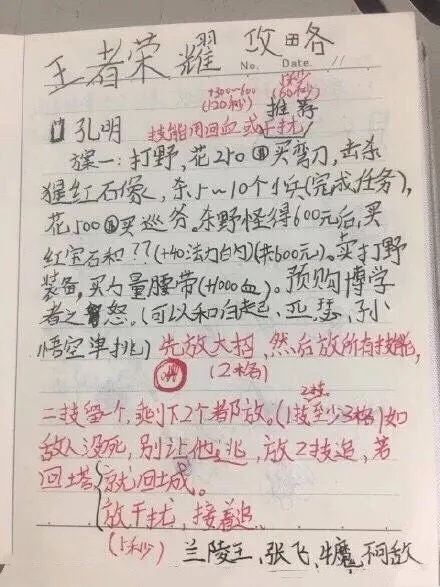 王者荣耀 攻略
No. Date. 11
+300~600 15秒
(120秒) (60秒)
孔明 技能用回血或干扰 推荐
方案一:打野,花250买弯刀,击杀
猩红石像,杀5~10个小兵(完成任务),
花500买巡务。杀野怪得600元后,买
红宝石和??(+40法力白内)(共600元)。买打野
装备,买力量腰带(+1000血)。预购博学
者之怒。(可以和白起、亚瑟、孙
悟空单挑)先放大招,然后放所有技能,
(2格)
二技留一个,剩下2个都放。(1技至少3格)如
2技
敌人没死,别让他逃,放2技追,若
回塔 就回城。
放干扰,接着追
(15秒) 兰陵王、张飞、牛魔、阿敌